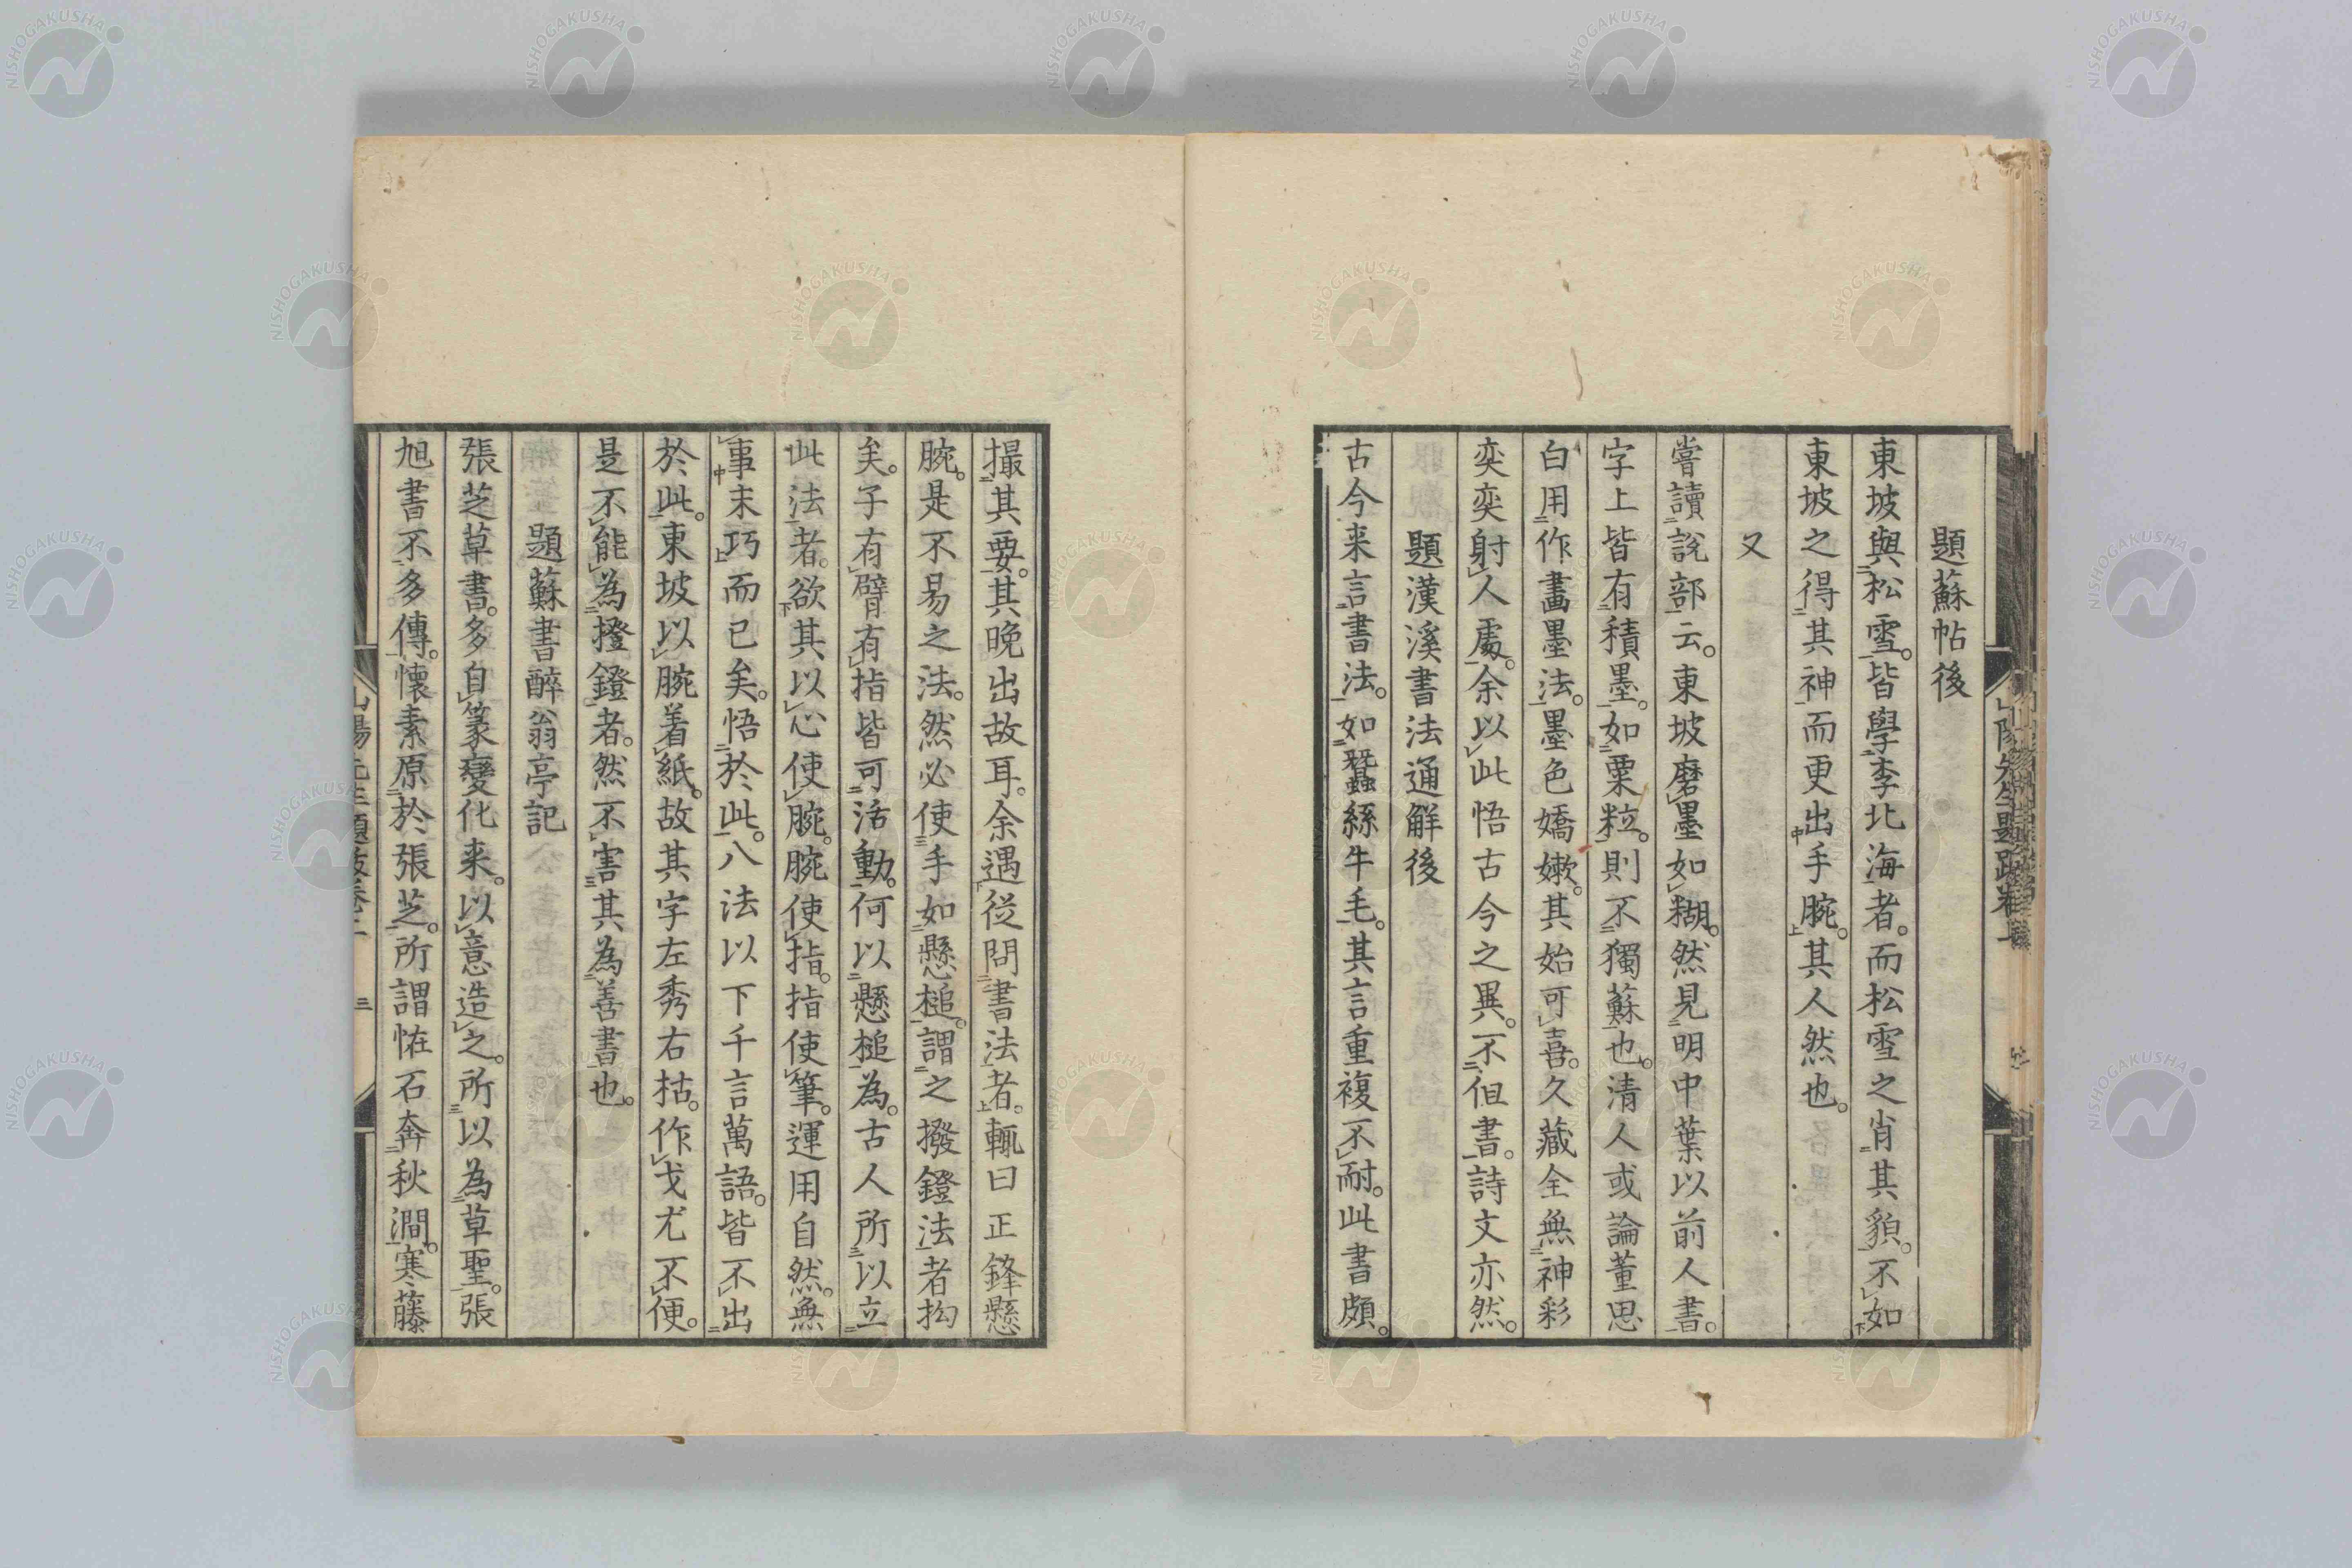 題蘇帖後
東坡與松雪。皆學李北海者。而松雪之肖其貌。不如
東坡之得其神而更出手腕。其人然也。
又
嘗讀說部云。東坡磨墨如糊。然見明中葉以前人書。
字上皆有積墨。如粟粒。則不獨蘇也。清人或論董思
白用作畫墨法。墨色嬌嫰。其始可喜。久藏全無神彩
奕奕射人處。余以此悟古今之異。不但書。詩文亦然。
題漢溪書法通解後
古今来言書法。如蠶絲牛毛。其言重複不耐。此書頗
撮其要。其晚出故耳。余遇從問書法者。輒曰正鋒懸
腕。是不易之法。然必使手如懸槌。謂之撥鐙法者拘
矣。子有臂有指皆可活動。何以懸槌為。古人所以立
此法者。欲其以心使腕。腕使指。指使筆。運用自然。無
事末巧而已矣。悟於此。八法以下千言萬語。皆不出
於此。東坡以腕着紙。故其字左秀右枯。作戈尤不便。
是不能為撥鐙者。然不害其為善書也。
題蘇書醉翁亭記
張芝草書。多自篆變化来。以意造之。所以為草聖。張
旭書不多傳。懷素原於張芝。所謂恠石奔秋澗。寒藤
NISHOGAKUSHA